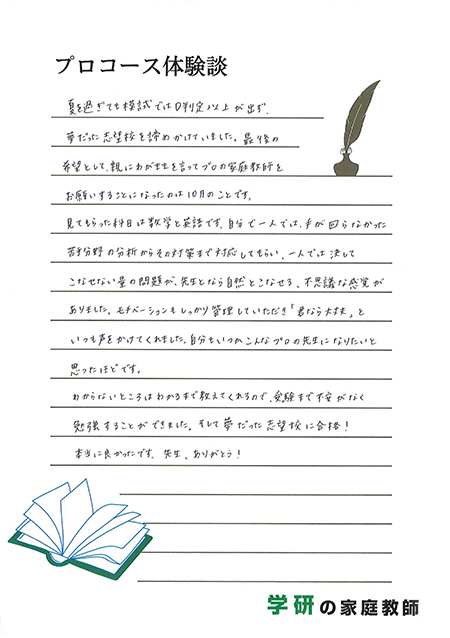 プロコース体験談
夏を過ぎても模試ではD判定以上が出ず、
夢だった志望校を諦めかけていました。最後の
希望として、親にわがままを言ってプロの家庭教師を
お願いすることになったのは10月のことです。
見てもらった科目は数学と英語です。自分で一人では、手が回らなかった
苦手分野の分析からその対策まで対応してもらい、一人では決して
こなせない量の問題が、先生となら自然とこなせる、不思議な感覚が
ありました。モチベーションもしっかり管理していただき「君なら大丈夫」と
いつも声をかけてくれました。自分もいつかこんなプロの先生になりたいと
思ったほどです。
わからないところはわかるまで教えてくれるので、受験まで不安がなく
勉強することができました。そして夢だった志望校に合格！
本当に良かったです。先生、ありがとう！
学研の家庭教師